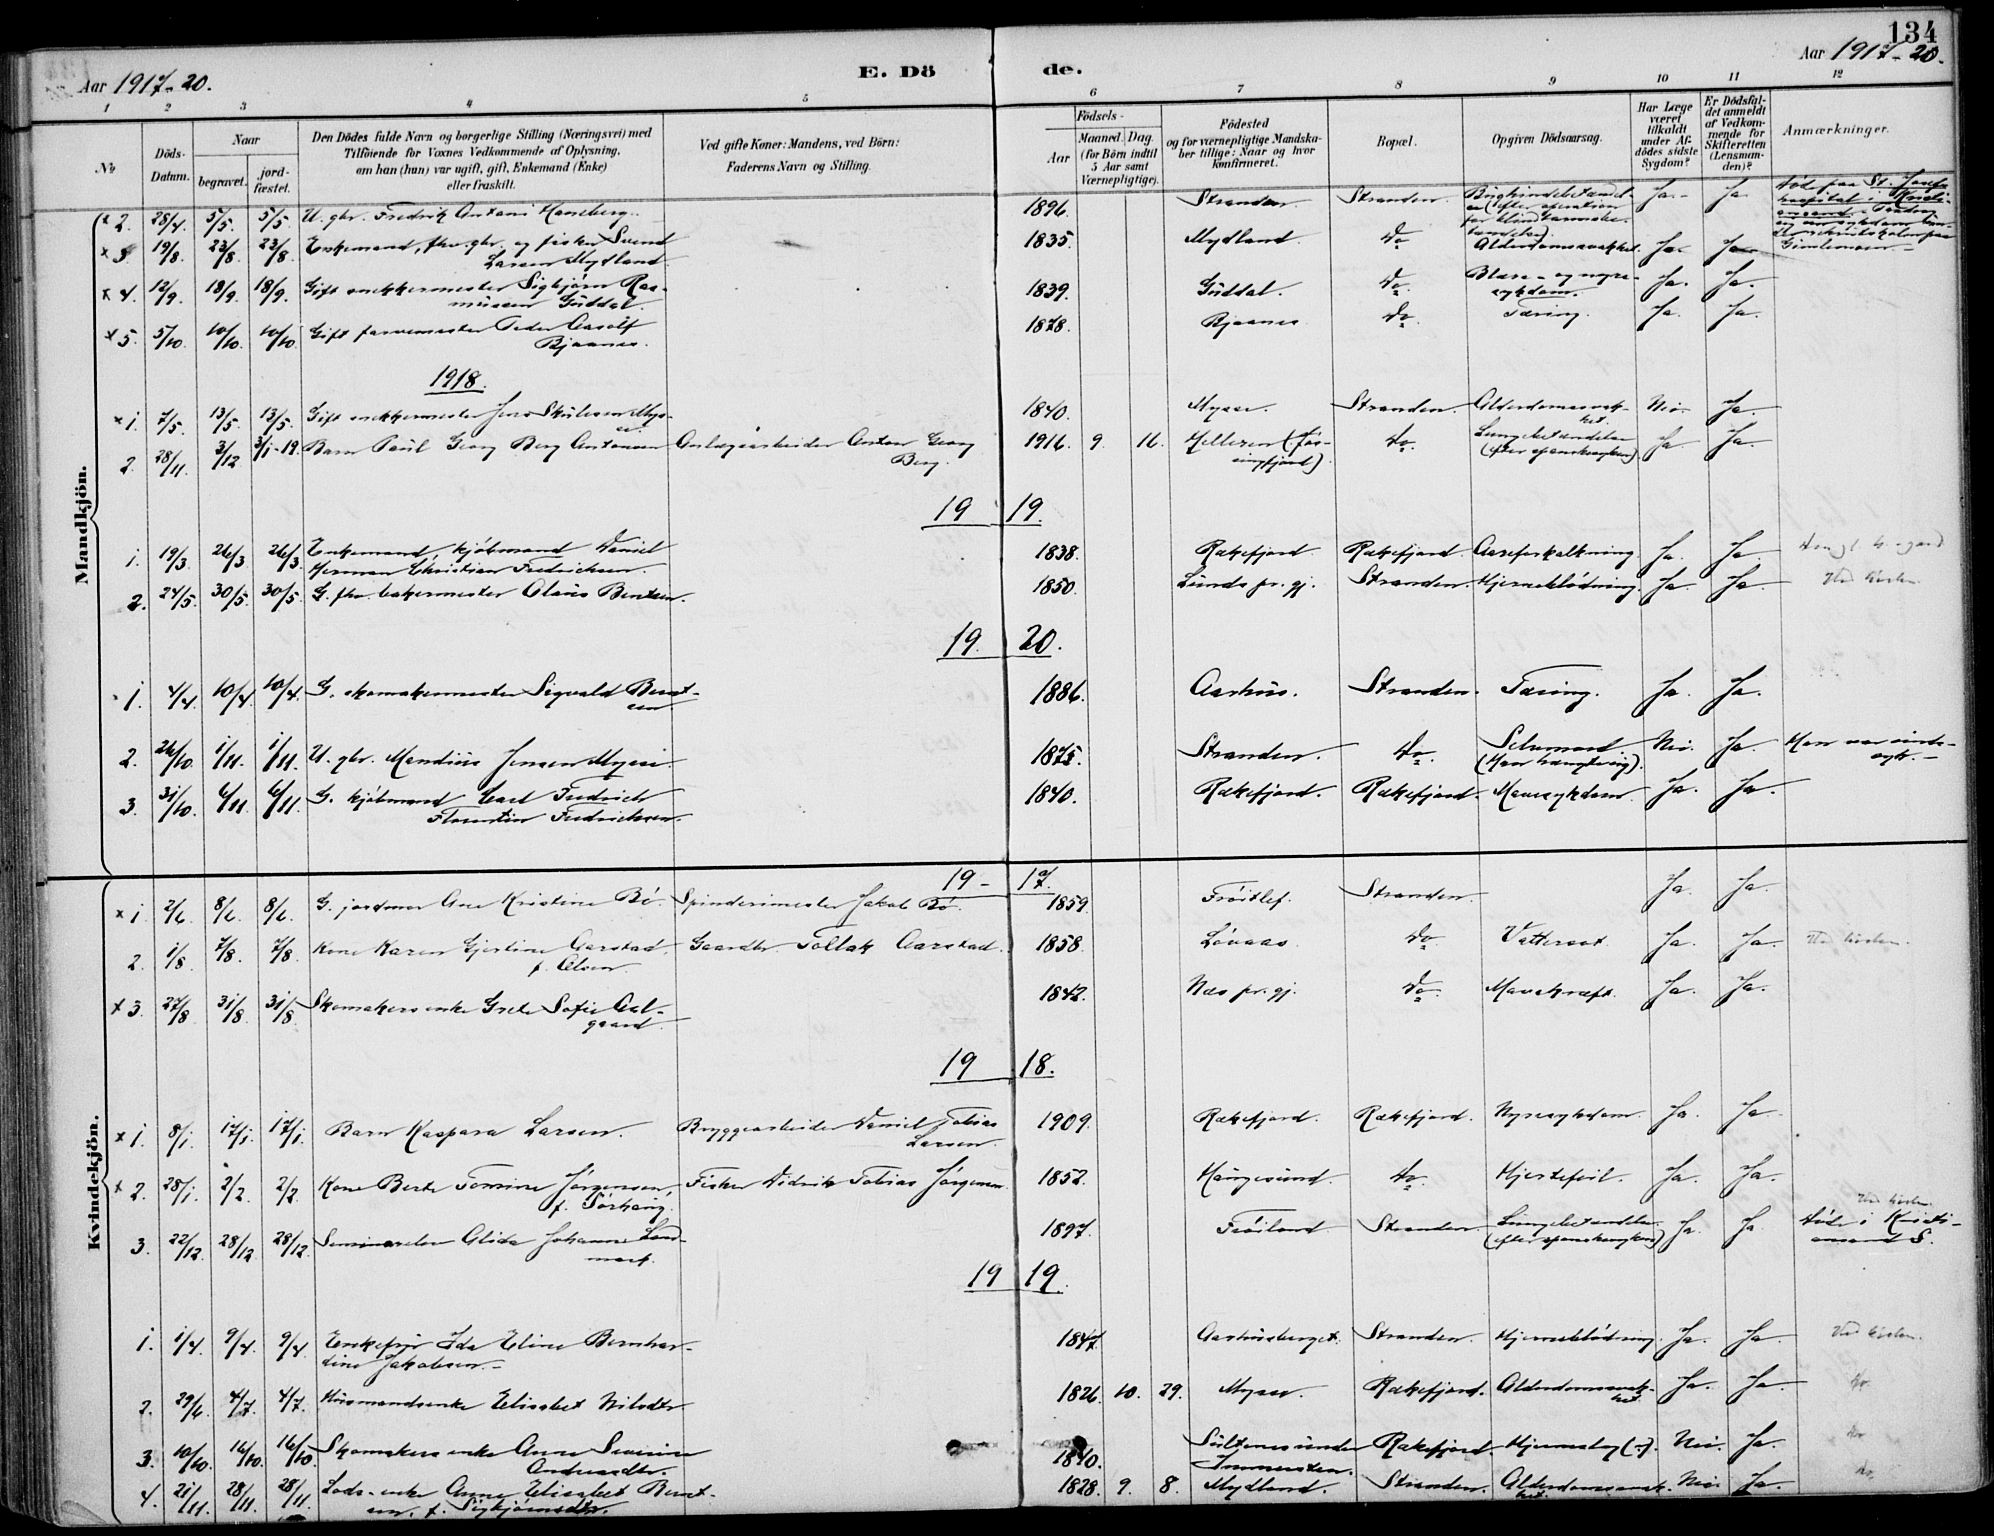 134
Aar 1917-20.
E. Döde.
Aar 1917-20.
1 2 3 4 5 6 7 8 9 10 11 12
No
Döds-
Datum.
Naar
begravet. jord-
fæstet.
Den Dödes fulde Navn og borgerlige Stilling (Næringsvei) med
Tilföiende for Voxnes Vedkommende af Oplysning,
om han (hun) var ugift, gift, Enkemand (Enke)
eller fraskilt.
Ved gifte Koner: Mandens, ved Börn:
Faderens Navn og Stilling.
Födsels-
Aar Maaned. Dag.
(for Börn indtil
5 Aar samt
Værnepligtige).
Födested
og for værnepligtige Mandska-
ber tillige: Naar og hvor
konfirmeret.
Bopæl.
Opgiven Dödsaarsag.
Har Læge
været
tilkaldt
under Af-
dödes sidste
Sygdom?
Er Dödsfal-
det anmeldt
af Vedkom-
mende for
Skifteretten
(Lensman-
den)?
Anmærkninger.
Mandkjön.
x 2. 28/4. 5/5. 5/5. U. gbr. Fredrik Antoni Haneberg. 1896. Stranden. Stranden. Ja. Ja.
x 3. 19/8. 23/8. 23/8. Enkemand, fhv. gbr. og fisker Svend
Larsen Mydland. 1835. Mydland. Do Alderdomssvakhet. Ja. Ja.
x 4. 12/9. 18/9. 18/9. Gift snekkermester Sigbjörn Ras-
mussen Guddal. 1839. Guddal. Do Blære- og nyre-
sykdom. Ja. Ja.
x 5. 5/10. 10/10. 10/10. Gift farvemester Peder Aasolf
Bjaanes. 1878. Bjaanes. Do Tæring. Ja. Ja.
1918.
x 1. 7/5. 13/5. 13/5. Gift snekkermester Jens Skulesen Mys-
se. 1840. Mysse. Stranden. Alderdomssvak-
het. Nei. Ja.
2. 28/11. 3/12 3/1-19. Barn Paul Georg Berg Antonsen Anlægsarbeider Anton Georg
Berg. 1916. 9. 16. Helleren (Jös-
singfjord). Do. Lungebetændelse
(efter spanskesyken). Ja. Ja.
19 19.
1. 19/3. 26/3 26/3. Enkemand, kjöbmand Daniel
Herman Christian Fredrichsen. 1838. Rækefjord. Rækefjord. Aareforkalkning. Ja. Ja.
2. 24/5. 30/5. 30/5. G. fhv. bakermester Olaus Bentsen. 1850. Lunds pr. gj. Stranden. Hjerneblödning. Ja. Ja. Ved kirken.
19. 20.
1. 4/4. 10/4. 10/4. G. skomakermester Sigvald Bernt-
sen 1886. Aarhus. Stranden. Tæring. Ja. Ja.
2. 26/10. 1/11. 1/11. U. gbr. Mandius Jensen Mysse. 1875. Stranden. Do. Selvmord
(Han hængte sig). Nei. Ja. Han var sinds-
syk.
3. 31/10. 6/11. 6/11. G. kjöbmand Carl Fredrich
Florentin Fredrichsen. 1840. Rækefjord. Rækefjord. Mavesykdom. Ja. Ja.
Kvindekjön.
19 - 17.
x 1. 2/6. 8/6. 8/6. G. jordmor Ane Kristine Bö. Spinderimester Jakob Bö. 1859. Fröitlef. Stranden. Ja. Ja.
2. 1/8. 7/8. 7/8. Kone Karen Gjertine Aarstad, Gaardbr. Tollak Aarstad. 1858. Lövaas. Do Vattersot. Ja. Ja. Ved kirken.
f. Olsen.
x 3. 27/8 31/8 31/8 Skomakers enke Grete Sofie Aal-
gaard. 1842. Næs pr. gj. Do. Mavekræft. Ja. Ja.
19 18.
x 1. 8/1. 17/1. 17/1. Barn Kaspara Larsen. Bryggearbeider Daniel Tobias
Larsen. 1909. Rækefjord. Rækefjord. Nyresykdom. Ja. Ja.
x 2. 28/1. 2/2. 2/2. Kone Berte Tomine Jörgensen, Fisker Didrik Tobias Jörgensen. 1852. Haugesund. Do. Hjertefeil. Ja. Ja.
f. Sörhaug.
3. 22/12. 28/12 28/12. Seminarelev Alida Johanne Land-
mark. 1897. Fröiland. Stranden. Lungebetændelse
(efter spanskesyken) Ja. Ja. Ved kirken.
Döde i Kristi-
ansand S.
19 19.
1. 1/4. 9/4. 9/4. Enkefru Ida Eline Bernhar-
dine Jakobsen. 1847. Aarhusberget. Stranden. Hjerneblödning. Ja. Ja. Ved kirken.
2. 29/6. 4/7. 4/7. Husmandsenke Elisabet Nilsdtr 1826. 10. 29. Mysse. Rækefjord. Alderdomssvak-
het. Ja. Ja. do.
3. 10/10. 16/10. 16/10. Skomakers enke Anne Severine
Andreasdtr. 1840. Rækefjord. Nei. Ja. do
4. 21/11. 28/11. 28/11. Lods-enke Anne Elisabet Bernt-
sen, f. Sigbjörnsdtr. 1828. 9. 8. Mydland. Stranden. Alderdomssvak-
het. Nei. Ja. do